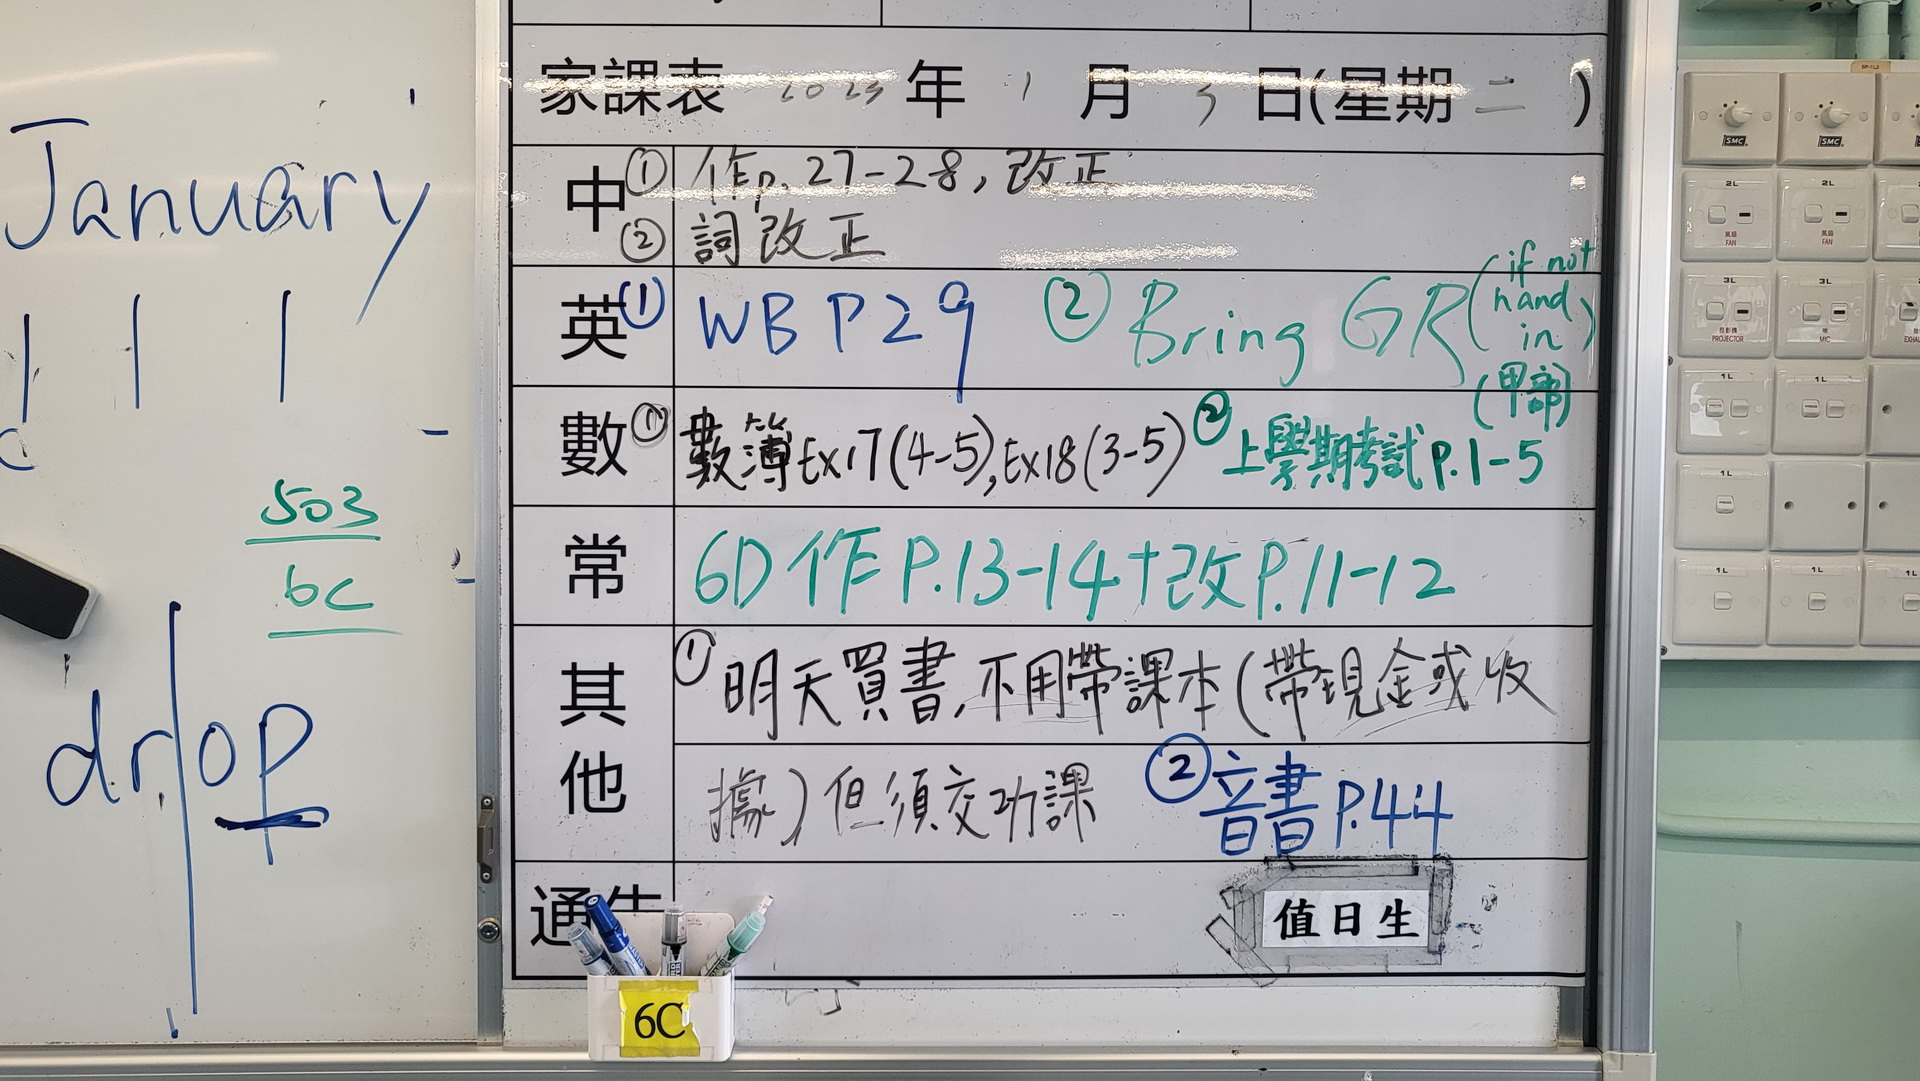 January
503
6C
drop
家課表 2023 年 1 月 3 日(星期 二 )
中 ① 作p.27-28, 改正
② 詞改正
英 ① WB P29 ② Bring GR (if not hand in)
數 ① 數簿Ex17(4-5), Ex18(3-5) ② 上學期考試p.1-5 (甲部)
常 6D 作 P.13-14+改P.11-12
其他 ① 明天買書,不用帶課本(帶現金或收
據)但須交功課 ② 音書 P.44
通告
值日生
6C
SP-1L3
SMC SMC
2L 2L
風扇 FAN 風扇 FAN
3L 3L
投影機 PROJECTOR 咪 MIC
1L 1L
1L
1L 1L 1L